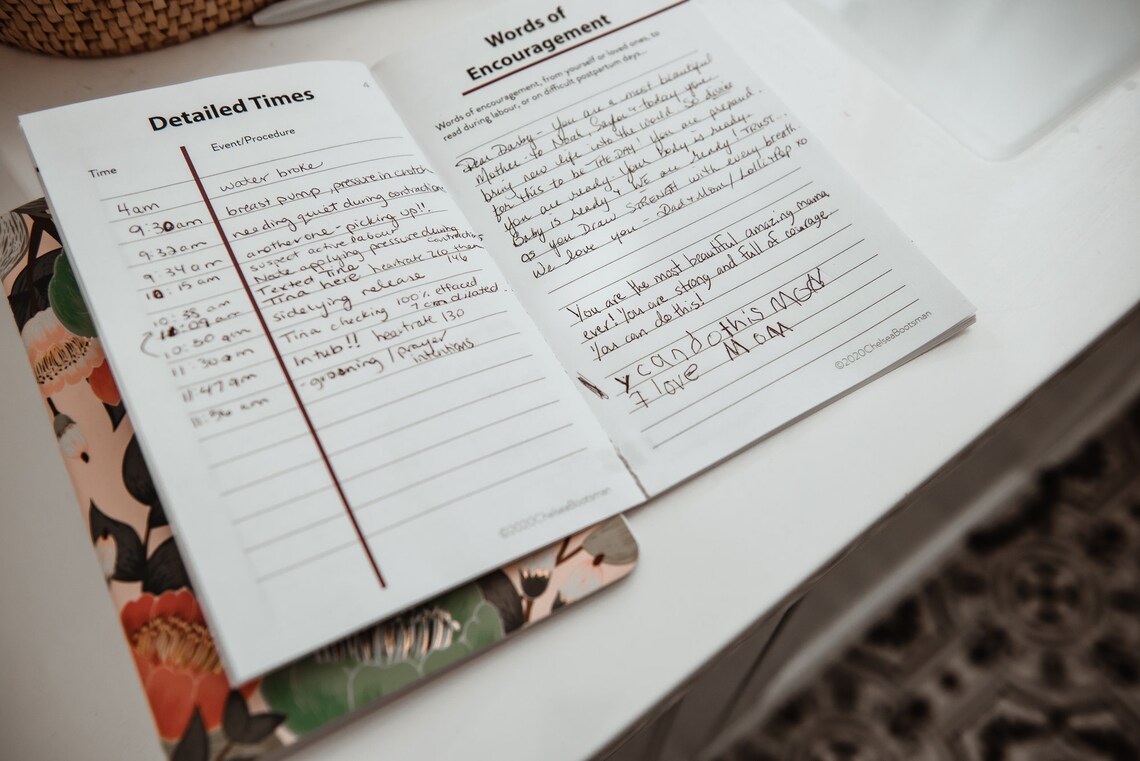 Detailed Times
4
Time
Event/Procedure
4am
water broke
9:30am
breast pump, pressure in crotch
9:32am
needing quiet during contraction
9:34am
another one - picking up!!
10:15am
suspect active labour
Nate applying pressure during contractions
10:35am
Texted Tina
11:09am
Tina here heartrate
10:50am
sidelying release 146
11:30am
Tina checking 100% effaced
7cm dilated
11:47am
In tub!! heartrate 130
am
- groaning / prayer
intentions
©2020ChelseaBootsman
Words of
Encouragement
Words of encouragement, from yourself or loved ones, to
read during labour, or on difficult postpartum days...
Dear Darby - You are a most beautiful
Mother - to Noah, & today you
bring new life into the world. So
for this to be THE DAY! You are prepared.
You are ready. Your body is ready.
Baby is ready & WE are ready! TRUST...
as you Draw STRENGTH with every breath.
We love you - Dad & Mom / Lolli & Pop xo
You are the most beautiful amazing mama
ever! You are strong and full of courage.
You can do this!
y can do this MOM
I love MOM
©2020ChelseaBootsman